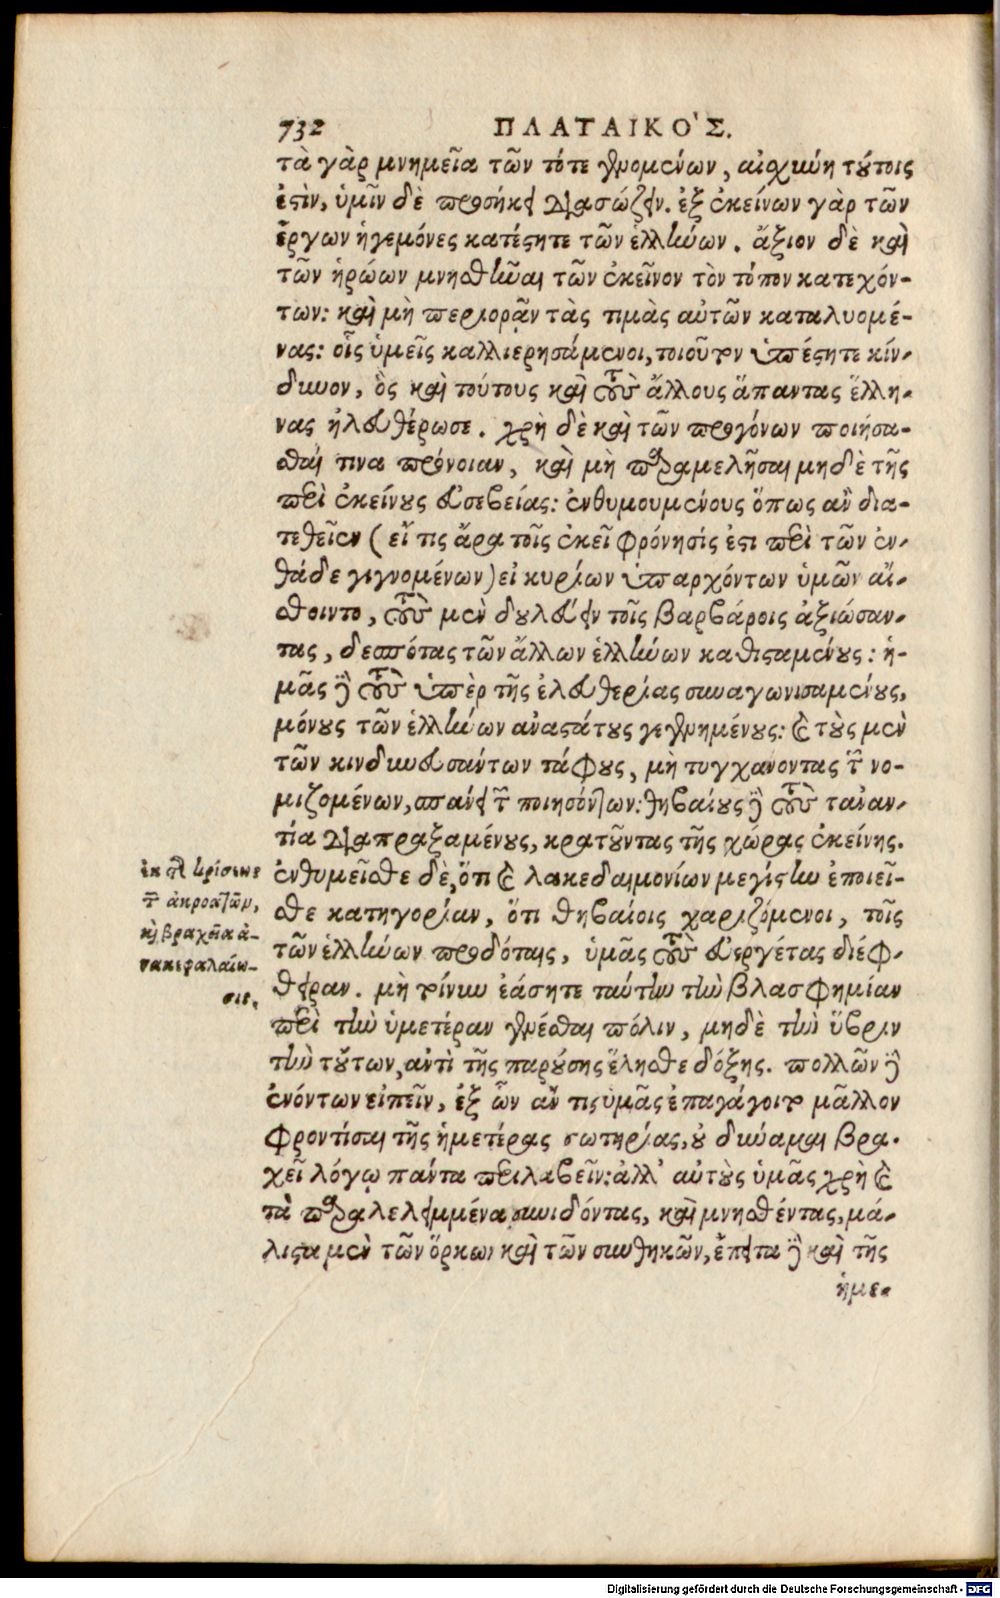 732 ΠΛΑΤΑΙΚΟ'Σ.
τὰ γὰρ μνημεῖα τῶν τότε γενομένων, αἰσχύνη τούτοις
ἐστὶν, ὑμῖν δὲ προσήκει διασώζειν. ἐξ ἐκείνων γὰρ τῶν
ἔργων ἡγεμόνες κατέστητε τῶν ἑλλήνων. ἄξιον δὲ καὶ
τῶν ἡρώων μνησθῆναι τῶν ἐκεῖνον τὸν τόπον κατεχόν-
των: καὶ μὴ περιορᾶν τὰς τιμὰς αὐτῶν καταλυομέ-
νας: οἷς ὑμεῖς καλλιερησάμενοι, τοιοῦτον ὑπέστητε κίν-
δυνον, ὃς καὶ τούτους καὶ τοὺς ἄλλους ἅπαντας ἕλλη-
νας ἠλευθέρωσε. χρὴ δὲ καὶ τῶν προγόνων ποιήσα-
σθαι τινα πρόνοιαν, καὶ μὴ παραμελῆσαι μηδὲ τῆς
περὶ ἐκείνους εὐσεβείας: ἐνθυμουμένους ὅπως ἂν δια-
τεθεῖεν (εἴ τις ἄρα τοῖς ἐκεῖ φρόνησίς ἐστι περὶ τῶν ἐν-
θάδε γιγνομένων) εἰ κυρίων ὑπαρχόντων ὑμῶν αἴ-
σθοιντο, τοὺς μὲν δουλεύειν τοῖς βαρβάροις ἀξιώσαν-
τας, δεσπότας τῶν ἄλλων ἑλλήνων καθισταμένους: ἡ-
μᾶς δὲ τοὺς ὑπὲρ τῆς ἐλευθερίας συναγωνισαμένους,
μόνους τῶν ἑλλήνων ἀναστάτους γεγενημένους: καὶ τοὺς μὲν
τῶν κινδυνευσάντων τάφους, μὴ τυγχάνοντας τῶν νο-
μιζομένων, σπάνει τῶν ποιησόντων: θηβαίους δὲ τοὺς τἀναν-
τία διαπραξαμένους, κρατοῦντας τῆς χώρας ἐκείνης.
ἐνθυμεῖσθε δὲ, ὅτι καὶ λακεδαιμονίων μεγίστην ἐποιεῖ-
σθε κατηγορίαν, ὅτι θηβαίοις χαριζόμενοι, τοῖς
τῶν ἑλλήνων προδόταις, ὑμᾶς τοὺς εὐεργέτας διέφ-
θειραν. μὴ τοίνυν ἐάσητε ταύτην τὴν βλασφημίαν
περὶ τὴν ὑμετέραν γενέσθαι πόλιν, μηδὲ τὴν ὕβριν
τὴν τούτων, ἀντὶ τῆς παρούσης ἕλησθε δόξης. πολλῶν δὲ
ἐνόντων εἰπεῖν, ἐξ ὧν ἄν τις ὑμᾶς ἐπαγάγοιτο μᾶλλον
φροντίσαι τῆς ἡμετέρας σωτηρίας, οὐ δύναμαι βρα-
χεῖ λόγῳ πάντα περιλαβεῖν: ἀλλ' αὐτοὺς ὑμᾶς χρὴ καὶ
τὰ παραλελειμμένα συνιδόντας, καὶ μνησθέντας, μά-
λιστα μὲν τῶν ὅρκων καὶ τῶν συνθηκῶν, ἔπειτα δὲ καὶ τῆς
ἡμε-
ἐκ τῆς κρίσεως
τῶν ἀκροατῶν,
καὶ βραχεῖα ἀ-
νακεφαλαίω-
σις.
Digitalisierung gefördert durch die Deutsche Forschungsgemeinschaft - DFG